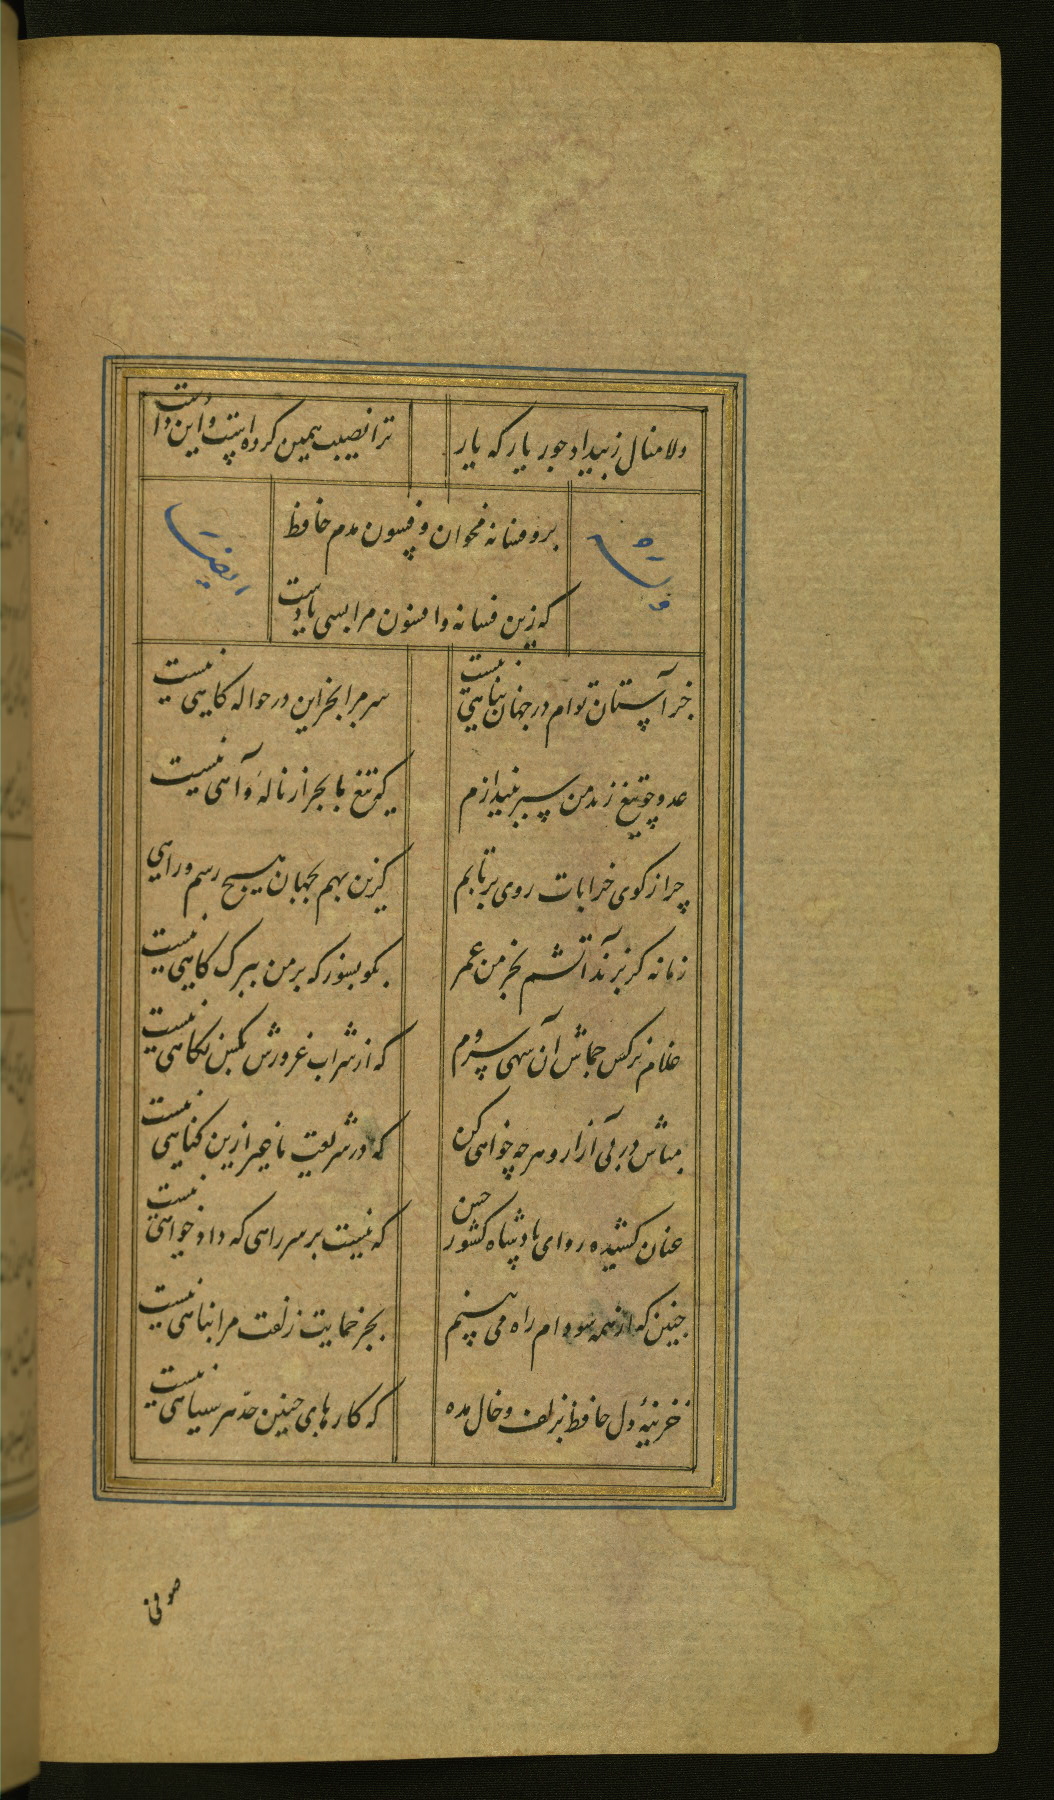 دلا منال ز بیداد جور یار که یار
ترا نصیب همین کرده است و این دادست
برو فسانه مخوان و فسون مدم حافظ
که زین فسانه و افسون مرا بسی یادست
وله
ایضا
جز آستان توام در جهان پناهی نیست
سر مرا بجز این در حواله کاهی نیست
عدو چو تیغ زند من سپر بیندازم
که تیغ ما بجز از نالهٔ و آهی نیست
چرا ز کوی خرابات روی برتابم
کزین بهم بجهان هیچ رسم و راهی
زمانه کر بزند آتشم بخرمن عمر
بکو بسوز که بر من ببرک کاهی نیست
غلام نرکس جماش آن سهی سروم
که از شراب غرورش بکس نکاهی نیست
مباش در پی آزار و هرچه خواهی کن
که در شریعت ما غیر ازین کناهی نیست
عنان کشیده رو ای پادشاه کشور حسن
که نیست بر سر راهی که دادخواهی نیست
چنین که از همه سو دام راه می بینم
بجز حمایت زلفت مرا پناهی نیست
خزینهٔ دل حافظ بزلف و خال مده
که کارهای چنین حد هر سیاهی نیست
صوفی